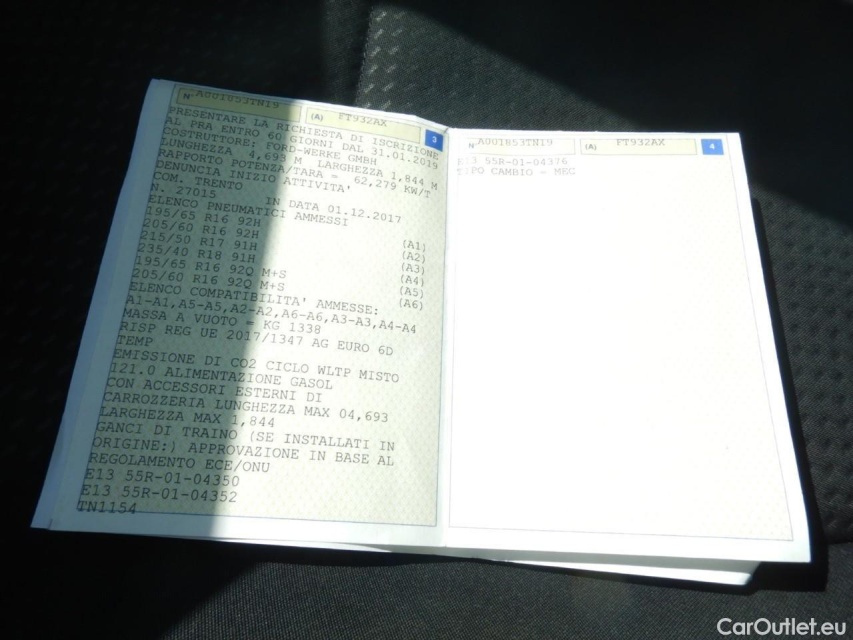 N° A001853TN19 (A) FT932AX 3
PRESENTARE LA RICHIESTA DI ISCRIZIONE
AL PRA ENTRO 60 GIORNI DAL 31.01.2019
COSTRUTTORE: FORD-WERKE GMBH
LUNGHEZZA 4,693 M LARGHEZZA 1,844 M
RAPPORTO POTENZA/TARA = 62,279 KW/T
DENUNCIA INIZIO ATTIVITA'
COM. TRENTO
N. 27015 IN DATA 01.12.2017
ELENCO PNEUMATICI AMMESSI
195/65 R16 92H (A1)
205/60 R16 92H (A2)
215/50 R17 91H (A3)
235/40 R18 91H (A4)
195/65 R16 92Q M+S (A5)
205/60 R16 92Q M+S (A6)
ELENCO COMPATIBILITA' AMMESSE:
A1-A1,A5-A5,A2-A2,A6-A6,A3-A3,A4-A4
MASSA A VUOTO = KG 1338
RISP REG UE 2017/1347 AG EURO 6D
TEMP
EMISSIONE DI CO2 CICLO WLTP MISTO
121.0 ALIMENTAZIONE GASOL
CON ACCESSORI ESTERNI DI
CARROZZERIA LUNGHEZZA MAX 04,693
LARGHEZZA MAX 1,844
GANCI DI TRAINO (SE INSTALLATI IN
ORIGINE:) APPROVAZIONE IN BASE AL
REGOLAMENTO ECE/ONU
E13 55R-01-04350
E13 55R-01-04352
TN1154
N° A001853TN19 (A) FT932AX 4
E13 55R-01-04376
TIPO CAMBIO - MEC
CarOutlet.eu